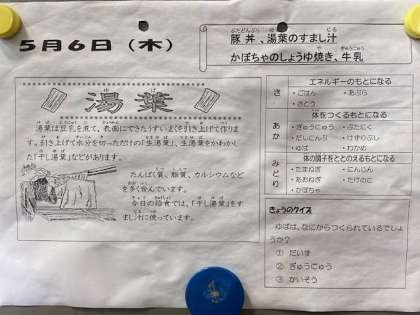 5月6日（木）
豚丼、湯葉のすまし汁
かぼちゃのしょうゆ焼き、牛乳
湯葉
湯葉は豆乳を煮て、表面にできたうすいまくを引き上げて作りま
す。引き上げて水分を切っただけの「生湯葉」、生湯葉をかわかし
た「干し湯葉」などがあります。
たんぱく質、脂質、カルシウムなど
を多く含んでいます。
今日の給食では、「干し湯葉」をす
まし汁に使っています。
エネルギーのもとになる
き
・ごはん ・あぶら
・さとう
体をつくるもとになる
あか
・ぎゅうにゅう ・ぶたにく
・だしこんぶ ・けずりぶし
・ゆば ・わかめ
体の調子をととのえるもとになる
みどり
・たまねぎ ・にんじん
・あおねぎ ・たけのこ
・かぼちゃ
きょうのクイズ
ゆばは、なにからつくられているでしょ
うか？
① だいず
② ぎゅうにゅう
③ かいそう